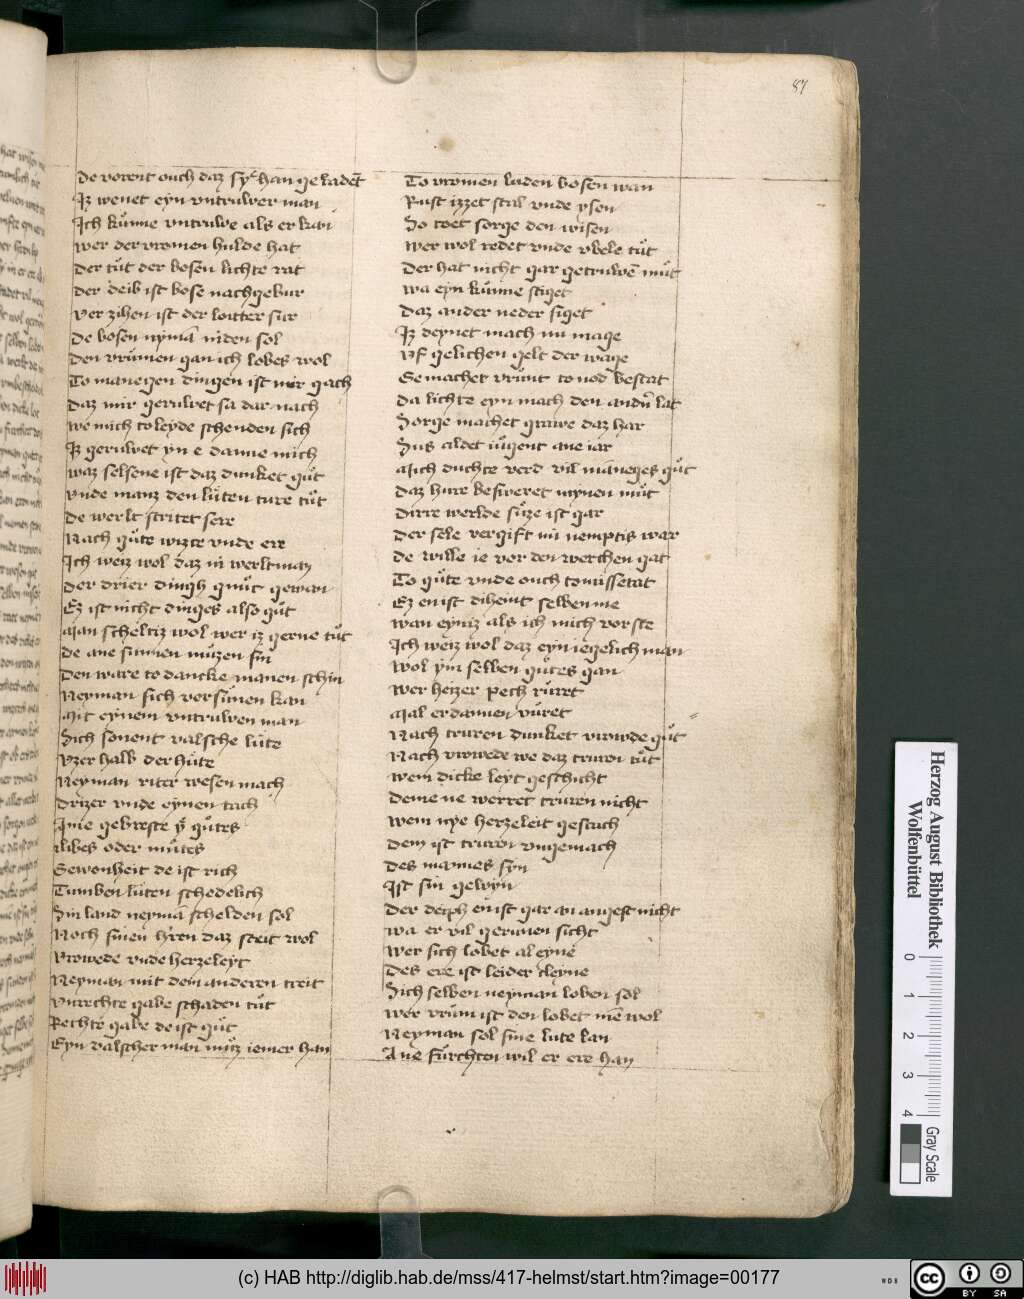 87
De vorent ouch daz sy͛ han geladet̄
Iz wenet eyn vntruwer man
Ich kůnne vntruwe als er kan
Wer der vromen hulde hat
Der tůt der bosen lichte rat
Der deib ist bose nachgebur
Ver zihen ist der lotter sur
De bosen nymā niden sol
Den vrůmen gan ich lobes wol
To manegen dingen ist mir gach
Daz mir geruwet sa dar nach
We mich to leyde schenden sich
Iz geruwet yn e danne mich
Waz selsene ist daz dunket gůt
Vnde manz den lůten ture tůt
De werlt stritet sere
Nach gůte wizte vnde ere
Ich weiz wol daz ni werltman
Der drier dingh gnůc gewan
Ez ist nicht dinges also gůt
Man scheltiz wol wer iz gerne tůt
De ane sunnen můzen sin
Den ware to dancke manen schin
Neyman sich vorsůnen kan
Mit eynem vntruwen man
Sich sonent valsche lůte
Vzer halb der hůte
Neyman riter wesen mach
Drizer vnde eynen tach
Ime gebreste y͛ gůtes
Libes oder můtes
Gewonheit de ist rich
Tumben lůten schedelich
Sin land neymā schelden sol
Noch sinen h͛ren daz steit wol
Vrowede vnde herzeleyt
Neyman mit dem anderen treit
Vnrechte gabe schaden tůt
Rechte gabe de ist gůt
Eyn valscher man můz iemer han
To vromen luden bosen wan
Rust izzet stal vnde ysen
So toet sorge den wisen
Wer wol redet vnde vbele tůt
Der hat nicht gar getruwē můt
Wa eyn kůnne stiget
Daz ander neder siget
Iz deynet mach nu mage
Vf gelichen gelt der wage
Gemachet vrůnt to nod͛ bestat
Da lichte eyn mach den and͛n lat
Sorge machet grawe daz har
Sus aldet iůgent ane iar
Mich duchte verd vil maneges gůt
Daz hure besweret mynen můt
Dirre werlde sůze ist gar
Der sele vergift nu nemptis war
De wille ie vor den werchen gat
To gůte vnde ouch to missetat
Ez enist diheint selben me
Wan eyniz als ich mich vorste
Ich weiz wol daz eyn iegelich man
Wol ym selben gůtes gan
Wer heizer pech růret
Mal er dannen vůret
Nach truren dunket vrowde gůt
Nach vrowede we daz truren tůt
Wem dicke leyt geschicht
Deme ne werret truren nicht
Wem nye herzeleit gescach
Dem ist truren vngemach
Des mannes syn
Ist sin gewyn
Der deiph enist gar an angest nicht
Wa er vil gerunen sicht
Wer sich lobet al eyne
Des ere ist leider cleyne
Sich selben neyman loben sol
Wer vrům ist den lobet mē wol
Neyman sol sine lute lan
Ane fůrchten wil er ere han
Herzog August Bibliothek
Wolfenbüttel
0 1 2 3 4
Gray Scale
(c) HAB http://diglib.hab.de/mss/417-helmst/start.htm?image=00177
WDB
cc BY SA